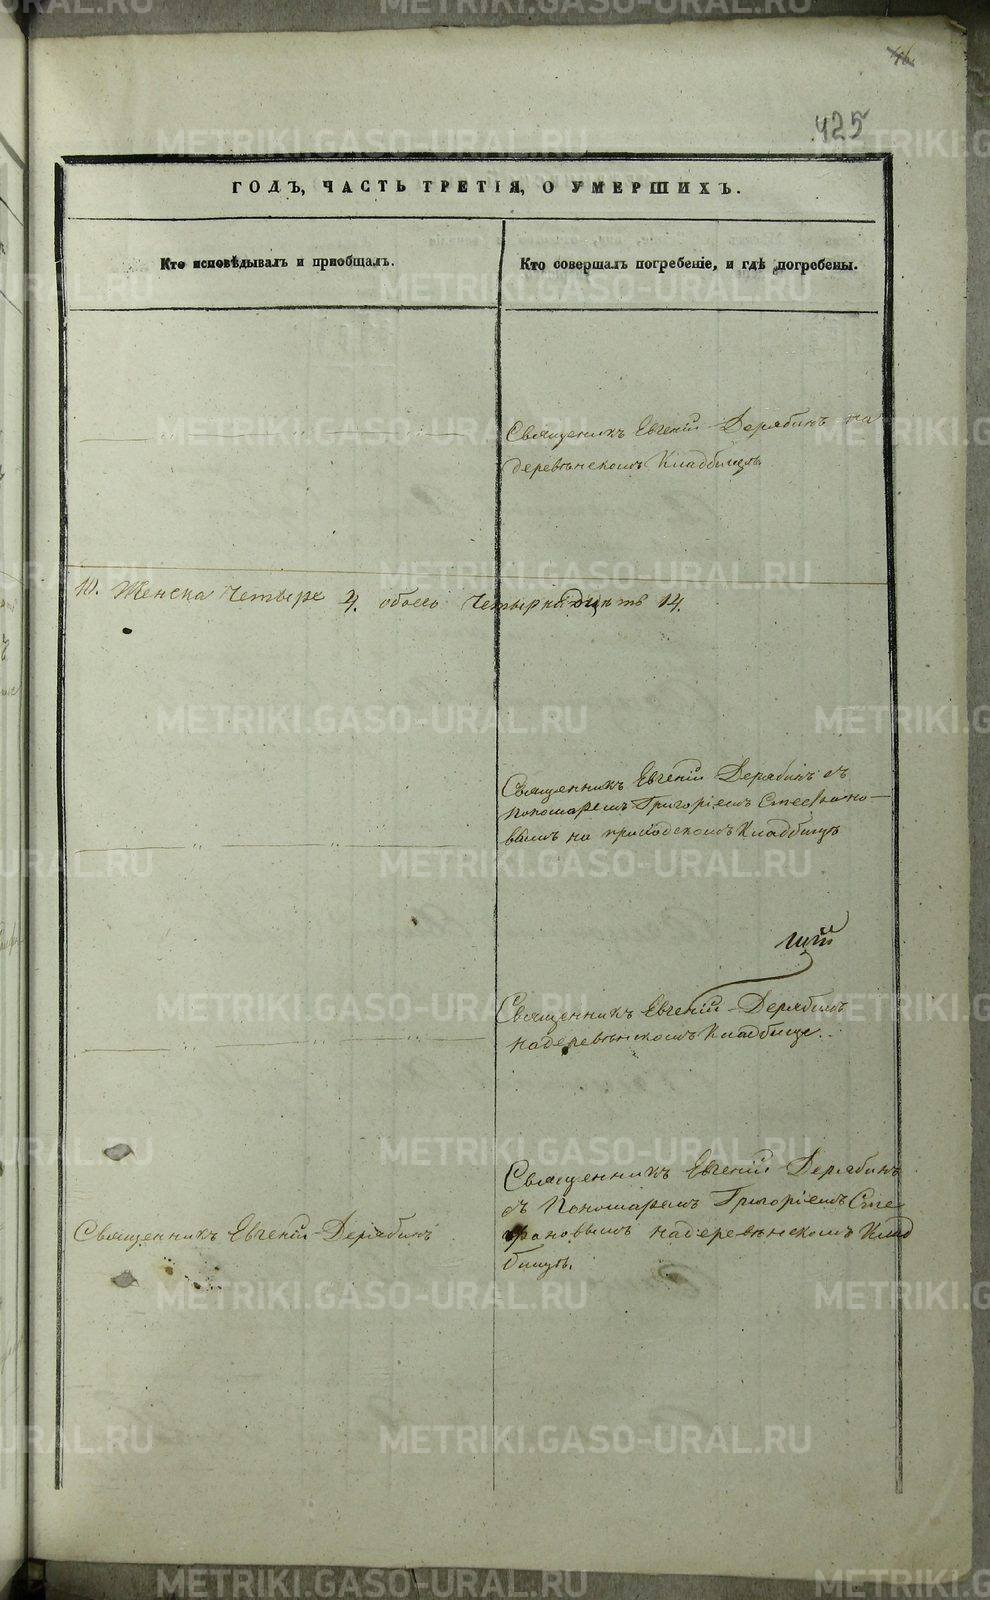 425
ГОДЪ, ЧАСТЬ ТРЕТІЯ, О УМЕРШИХЪ.
Кто исповѣдывалъ и пріобщалъ.
Кто совершалъ погребеніе, и гдѣ погребены.
Священникъ Евгеній Дерябинъ на
деревенскомъ Кладбищѣ
10. Женска Четыре 4. обоего Четырнадцать 14.
Священникъ Евгеній Дерябинъ съ
пономаремъ Григоріемъ Стефано-
вымъ на приходскомъ Кладбищѣ
Священникъ Евгеній Дерябинъ
на деревенскомъ Кладбище.
Священникъ Евгеній Дерябинъ
Священникъ Евгеній Дерябинъ
съ Пономаремъ Григоріемъ Сте
фановымъ на деревенскомъ Клад
бищѣ.
METRIKI.GASO-URAL.RU